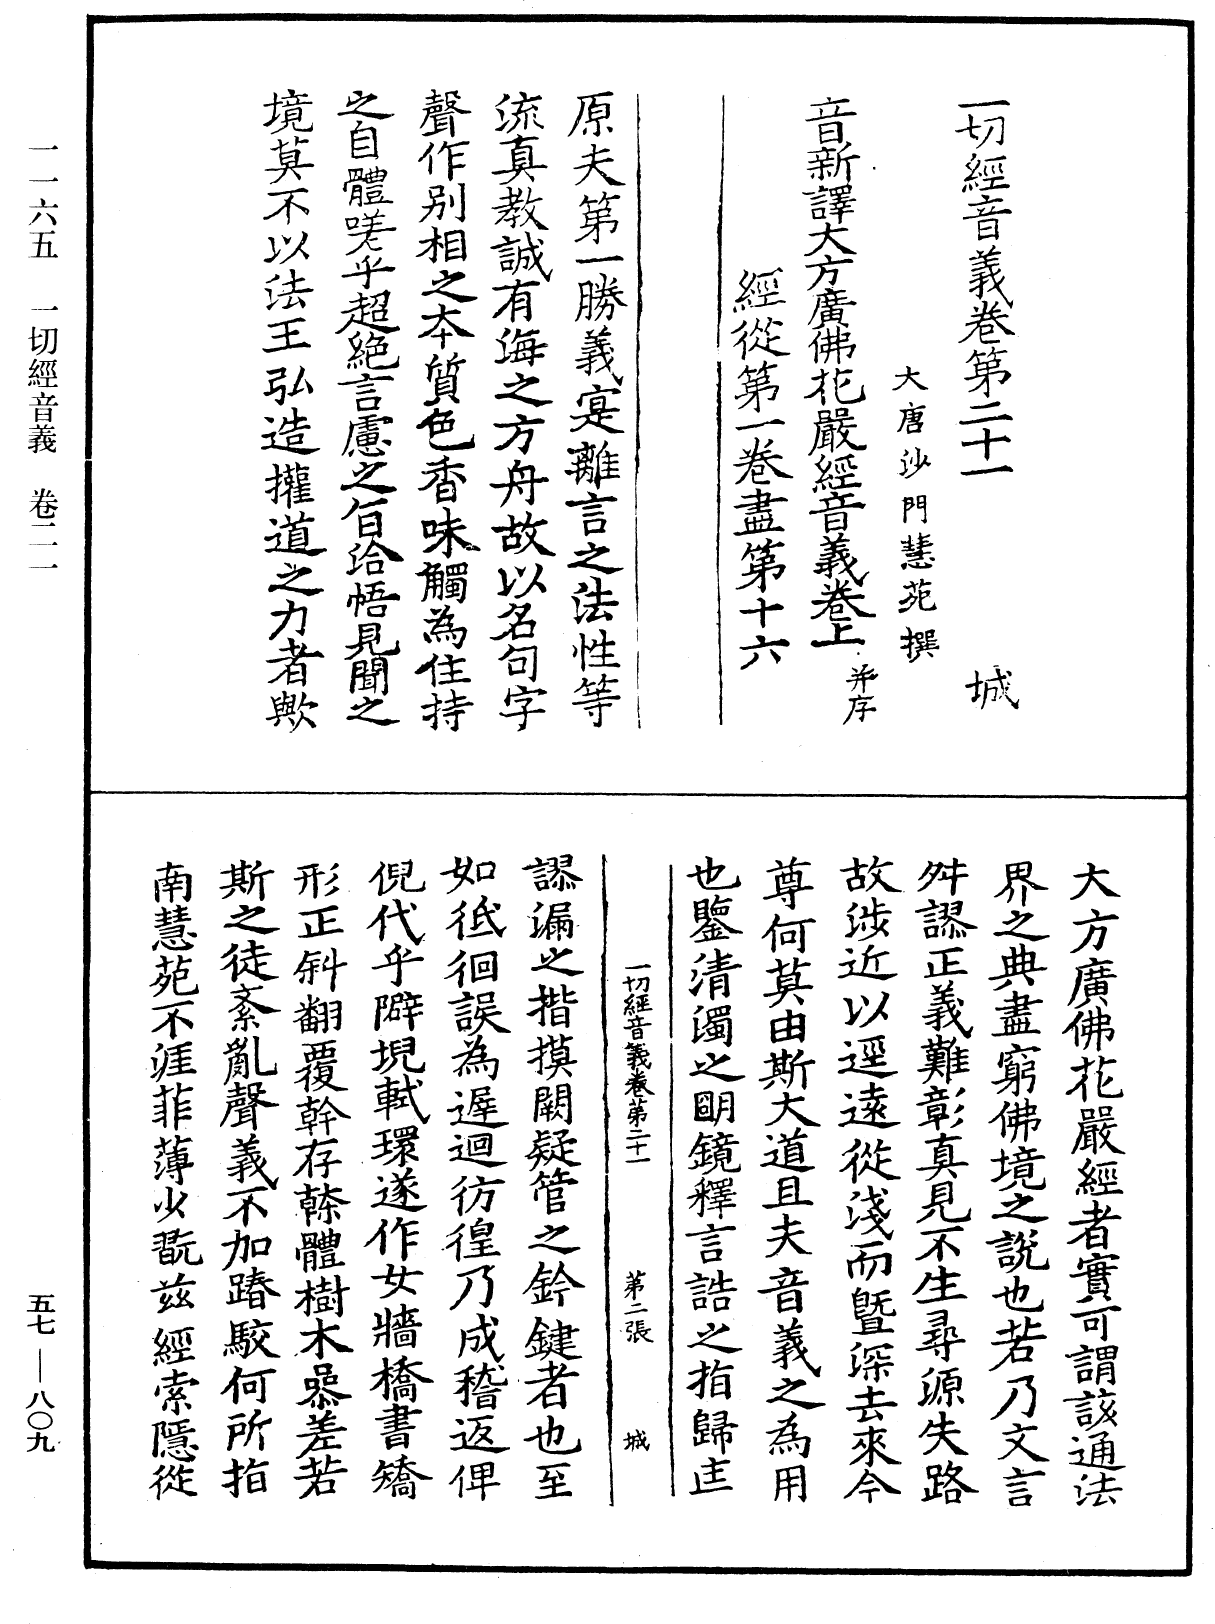 一切經音義卷第二十一　城
大唐沙門慧苑撰
音新譯大方廣佛花嚴經音義卷上并序
經從第一卷盡第十六
原夫第一勝義寔離言之法性等
流真教誠有海之方舟故以名句字
聲作別相之本質色香味觸為住持
之自體嗟乎超絕言慮之旨洽悟見聞之
境莫不以法王弘造攉道之力者歟
大方廣佛花嚴經者實可謂該通法
界之典盡窮佛境之說也若乃文言
舛謬正義難彰真見不生尋源失路
故涉近以逕遠從淺而暨深去來今
尊何莫由斯大道且夫音義之為用
也鑒清濁之明鏡釋言誥之指歸㞷
一切經音義卷第二十一　第二張　城
謬漏之揩摸闕疑管之鈐鍵者也至
如彽徊誤為遲迴彷徨乃成稽返俾
倪代乎隦堄軾環遂作女牆橋書矯
形正斜翻覆幹存榦體樹木參差若
斯之徒紊亂聲義不加踳駮何所指
南慧苑不涯菲薄少翫茲經索隱從
一一六五　一切經音義　卷二一
五七—八〇九